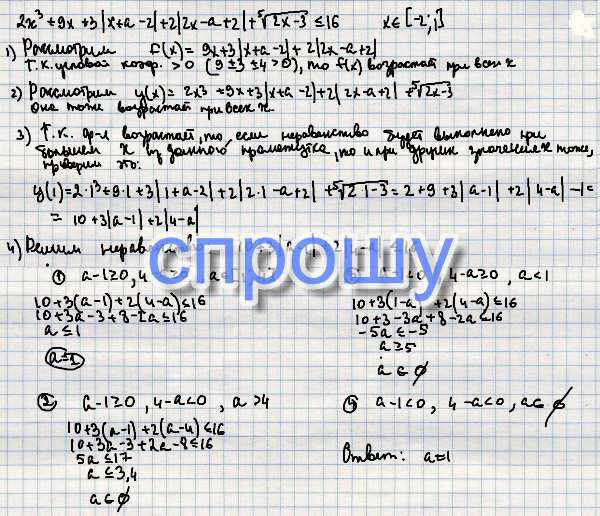 2x³+9x+3|x+a-2|+2|2x-a+2|+⁵√2x-3 ≤16 x∈[-2;1]
1) Рассмотрим f(x)= 9x+3|x+a-2|+2|2x-a+2|
Т.к. угловой коэф. >0 (9±3±4>0), то f(x) возрастает при всех x
2) Рассмотрим y(x)= 2x³+9x+3|x+a-2|+2|2x-a+2| +⁵√2x-3
Она тоже возрастает при всех x.
3) Т.к. ф-я возрастает, то, если неравенство будет выполнено при
большем x из данного промежутка, то и при других значениях x тоже,
проверим это:
y(1)=2·1³+9·1+3|1+a-2|+2|2·1-a+2| +⁵√2·1-3=2+9+3|a-1|+2|4-a|-1=
= 10+3|a-1|+2|4-a|
4) Решим
спрошу
① a-1≥0, 4-a<0, 4-a≥0, a<1
10+3(a-1)+2(4-a)≤16 10+3(1-a)+2(4-a)≤16
10+3a-3+8-2a≤16 10+3-3a+8-2a≤16
a≤1 -5a≤-5
a=1 a≥5
a∈∅
② a-1≥0, 4-a<0, a>4 ④ a-1<0, 4-a<0, a∈∅
10+3(a-1)+2(a-4)≤16
10+3a-3+2a-8≤16
5a≤17 Ответ: a=1
a≤3,4
a∈∅